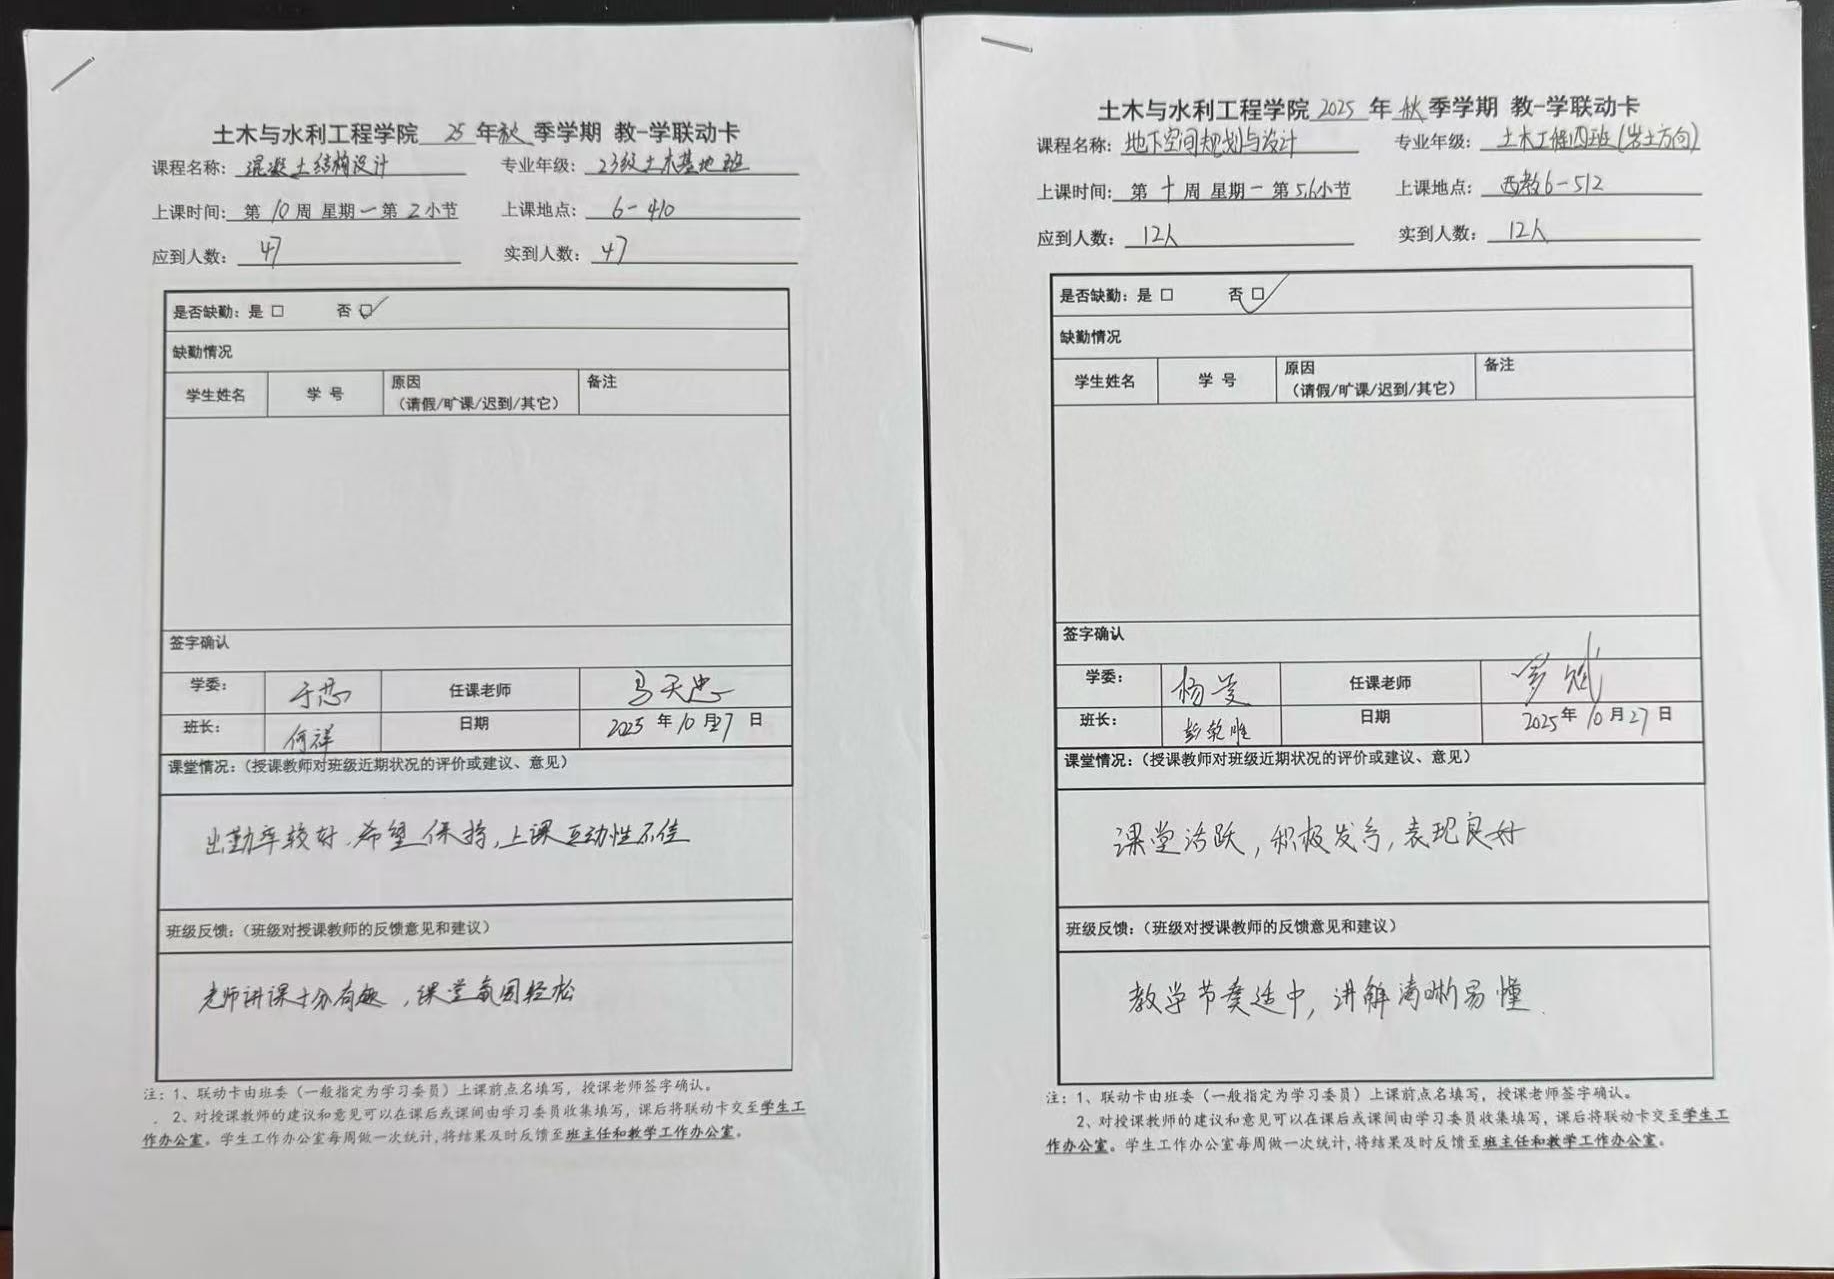 土木与水利工程学院 25 年秋 季学期 教-学联动卡
课程名称: 混凝土结构设计 专业年级: 23级土木基地班
上课时间: 第 10 周 星期一第 2 小节 上课地点: 6-410
应到人数: 47 实到人数: 47
是否缺勤: 是 □ 否 □✓
缺勤情况
学生姓名 学 号 原因 备注
(请假/旷课/迟到/其它)
签字确认
学委: 任课老师 马天忠
班长: 何祥 日期 2025 年 10 月 27 日
课堂情况:(授课教师对班级近期状况的评价或建议、意见)
出勤率较好,希望保持,上课互动性不佳
班级反馈:(班级对授课教师的反馈意见和建议)
老师讲课十分有趣,课堂氛围轻松
注: 1、联动卡由班委(一般指定为学习委员)上课前点名填写, 授课老师签字确认。
2、对授课教师的建议和意见可以在课后或课间由学习委员收集填写, 课后将联动卡交至学生工
作办公室。学生工作办公室每周做一次统计,将结果及时反馈至班主任和教学工作办公室。
土木与水利工程学院 2025 年 秋 季学期 教-学联动卡
课程名称: 地下空间规划与设计 专业年级: 土木工程四班(岩土方向)
上课时间: 第 十 周 星期一 第5,6小节 上课地点: 西教6-512
应到人数: 12人 实到人数: 12人
是否缺勤: 是 □ 否 □✓
缺勤情况
学生姓名 学 号 原因 备注
(请假/旷课/迟到/其它)
签字确认
学委: 任课老师
班长: 日期 2025年 10 月 27 日
课堂情况:(授课教师对班级近期状况的评价或建议、意见)
课堂活跃,积极发言,表现良好
班级反馈:(班级对授课教师的反馈意见和建议)
教学节奏适中,讲解清晰易懂.
注: 1、联动卡由班委(一般指定为学习委员)上课前点名填写, 授课老师签字确认。
2、对授课教师的建议和意见可以在课后或课间由学习委员收集填写, 课后将联动卡交至学生工
作办公室。学生工作办公室每周做一次统计,将结果及时反馈至班主任和教学工作办公室。